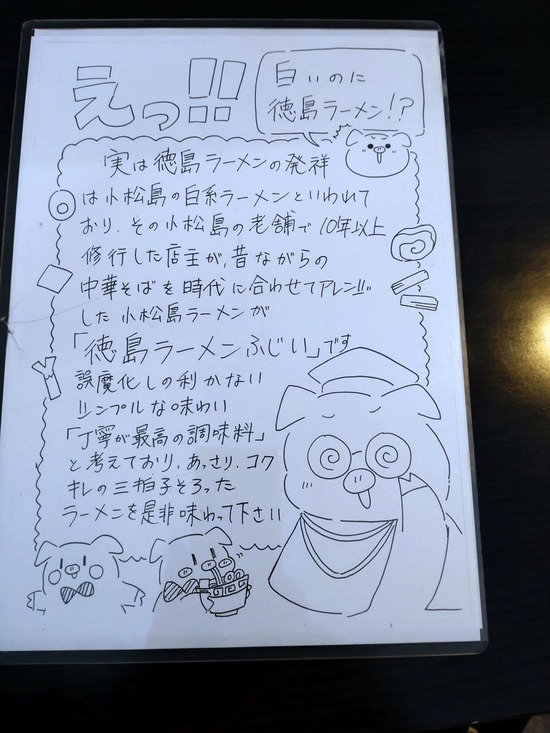 えっ!!
白いのに
徳島ラーメン!?
実は徳島ラーメンの発祥
は小松島の白系ラーメンといわれて
おり、その小松島の老舗で10年以上
修行した店主が、昔ながらの
中華そばを時代に合わせてアレンジ
した小松島ラーメンが
「徳島ラーメンふじい」です
誤魔化しの利かない
シンプルな味わい
「丁寧が最高の調味料」
と考えており、あっさり、コク
キレの三拍子そろった
ラーメンを是非味わって下さい